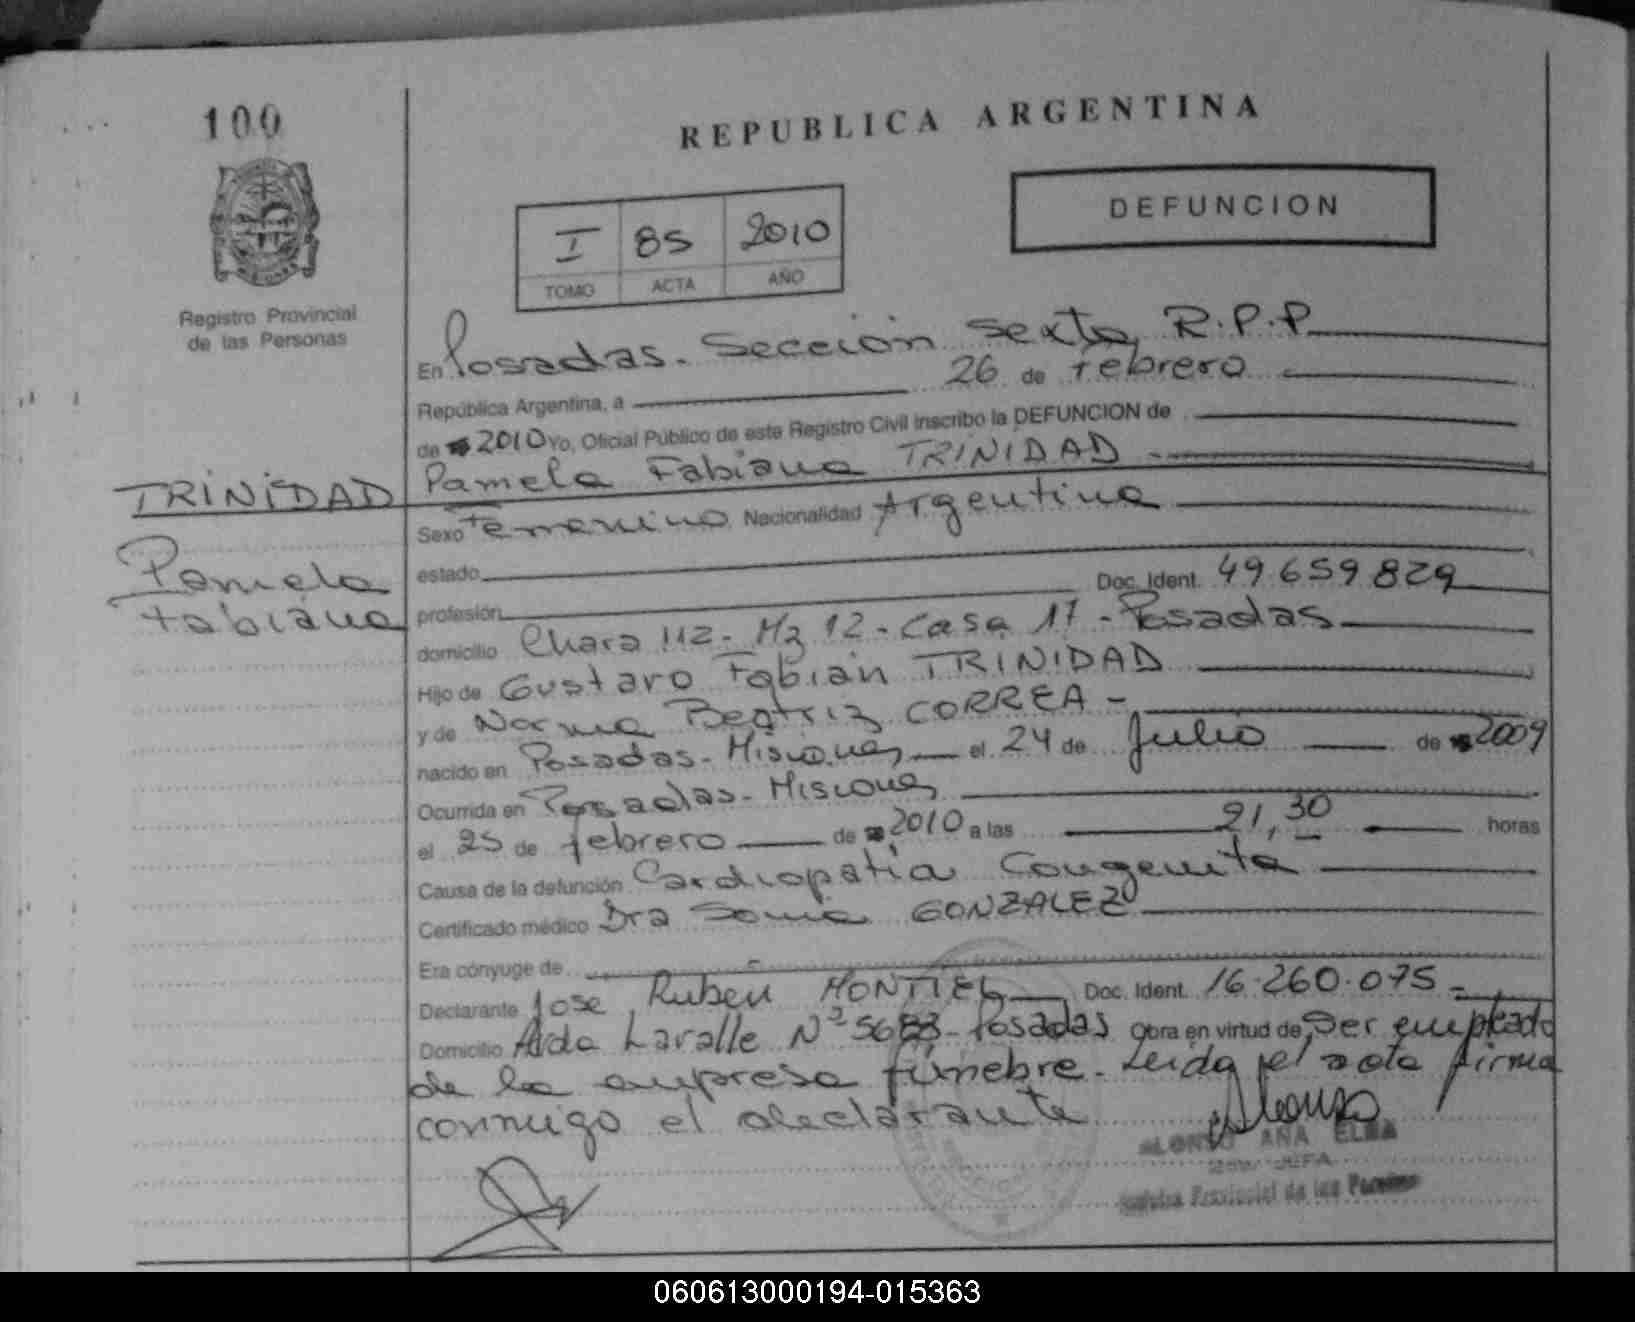 100
REPUBLICA ARGENTINA
DEFUNCION
I 85 2010
TOMO ACTA AÑO
Registro Provincial
de las Personas
En Posadas. Sección Sexta R.P.P
República Argentina, a 26 de febrero
de 2010 Yo, Oficial Público de este Registro Civil inscribo la DEFUNCION de
Pamela Fabiana TRINIDAD
TRINIDAD
Pamela
Fabiana
Sexo Femenino Nacionalidad Argentina
estado
profesión Doc. Ident. 49.659.829
domicilio Chara 112 - Mz 12 - Casa 17 - Posadas
Hijo de Gustavo Fabián TRINIDAD
y de Norma Beatriz CORREA -
nacido en Posadas - Misiones el 24 de Julio de 2009
Ocurrida en Posadas - Misiones
el 25 de febrero de 2010 a las 21,30 horas
Causa de la defunción Cardiopatía Congenita
Certificado médico Dra Sonia GONZALEZ
Era cónyuge de
Declarante Jose Ruben MONTIEL Doc. Ident. 16.260.075 -
Domicilio Avda Lavalle Nº 5683 - Posadas Obra en virtud de Ser empleado
de la empresa fúnebre. Leída el acta firma
conmigo el declarante
ALONSO ANA ELBA
JEFA
Registro Provincial de las Personas
060613000194-015363